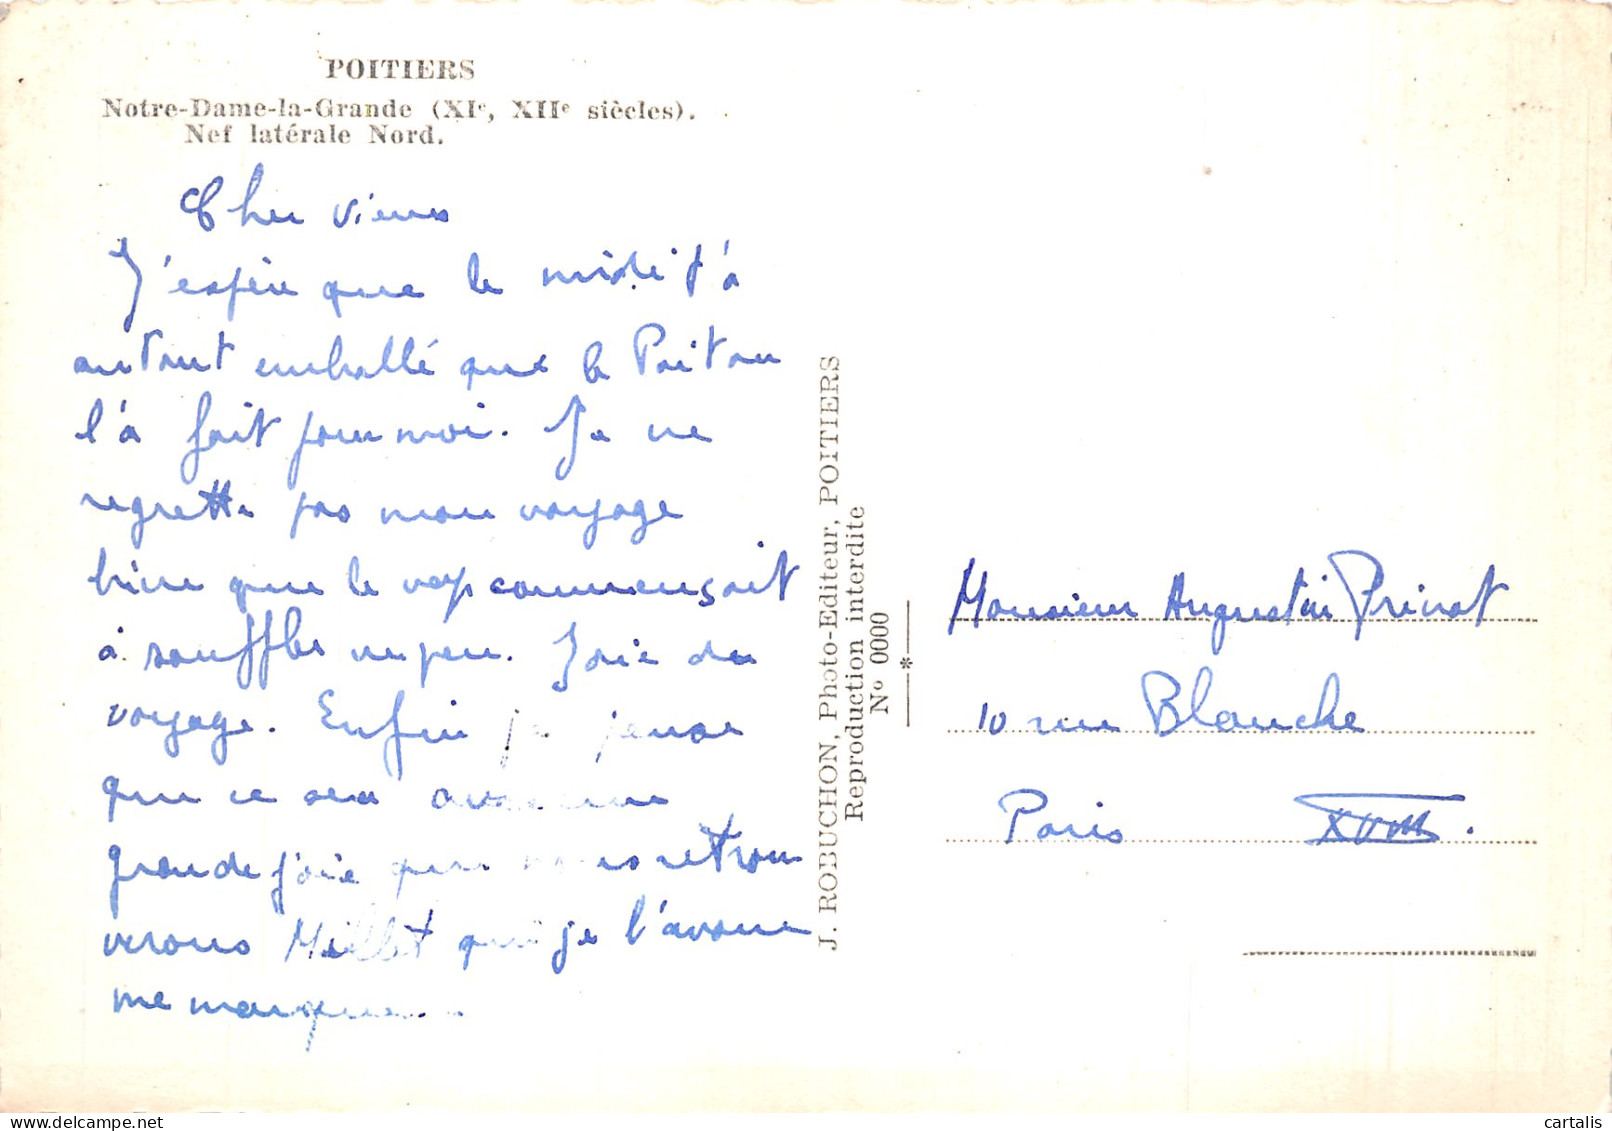 POITIERS
Notre-Dame-la-Grande (XIe, XIIe siècles).
Nef latérale Nord.
Cher vieux
J'espère que le midi t'a
autant emballé que le Poitou
l'a fait pour moi. Je ne
regrette pas mon voyage
bien que le commençait
à souffler un peu. Joie du
voyage. Enfin je pense
que ce sera avec une
grande joie que nous retrou
verons Millet que je l'avoue
me manque..
J. ROBUCHON, Photo-Editeur, POITIERS
Reproduction interdite
No 0000
Monsieur Augustin
10 rue Blanche
Paris
cartalis